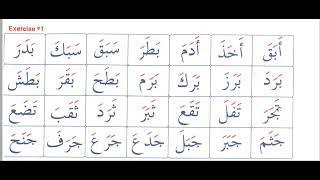 Exercise #1
أَبَقَ أَخَذَ أَدَمَ بَطَرَ سَبَقَ سَبَكَ بَدَرَ
بَرَدَ بَرَزَ بَرَكَ بَرَمَ بَطَحَ بَقَرَ بَطَشَ
تَجَرَ تَفَلَ تَقَعَ ثَبَرَ ثَرَدَ ثَقَبَ تَضَعَ
جَثَمَ جَبَرَ جَبَلَ جَدَعَ جَرَعَ جَرَفَ جَنَحَ